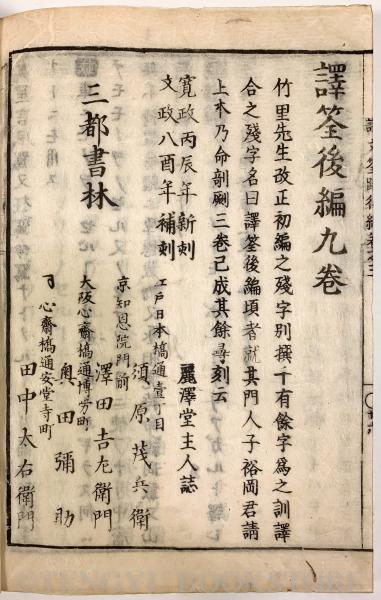 譯筌後編九卷
竹里先生改正初編之殘字別撰千有餘字爲之訓譯
合之殘字名曰譯筌後編頃者就其門人子裕岡君請
上木乃命剞劂三卷已成其餘尋刻云
麗澤堂主人誌
寛政丙辰年新刻
文政八酉年補刻
三都書林
江戸日本橋通壹丁目
須原茂兵衛
京知恩院門前
澤田吉左衛門
大阪心齋橋通博労町
奥田彌助
心齋橋通安堂寺町
田中太右衛門
TENGYU BOOKSTORE